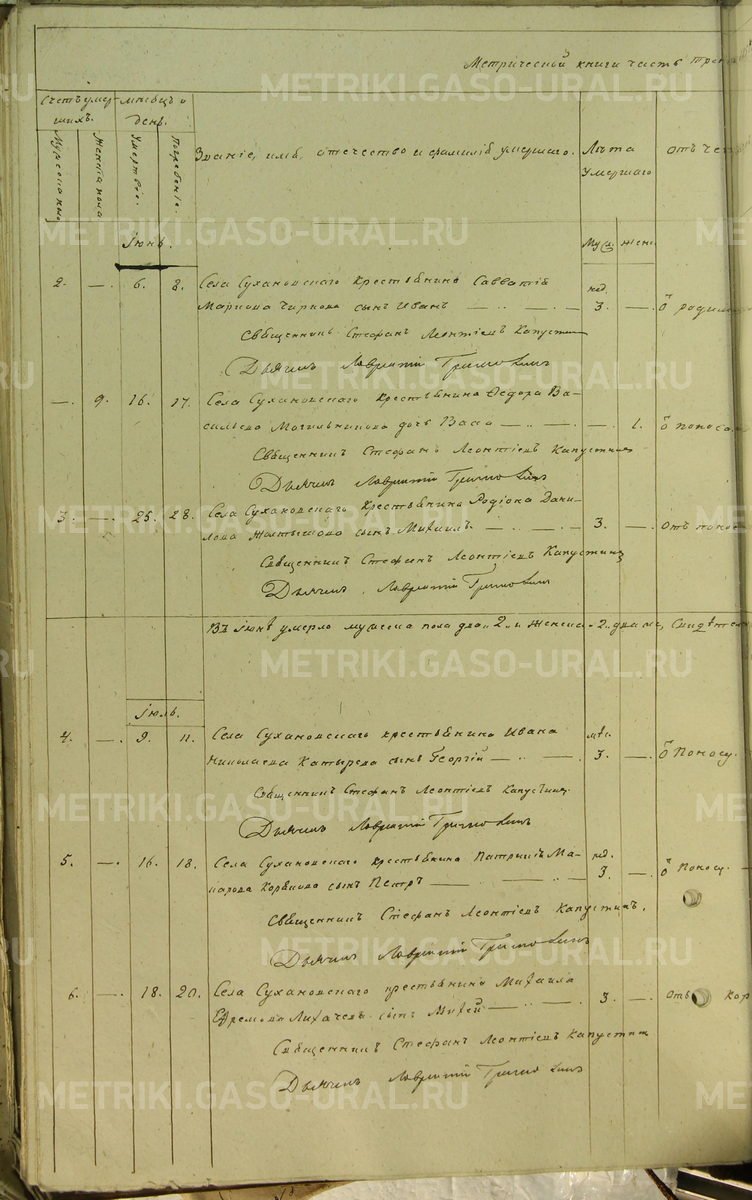 Метрической книги часть
Счетъ умер- мѣсяцъ и
шихъ. день.
Мужеска Женска пола Умертвіе. Погребеніе.
Званіе, имя, отечество и фамилія умершаго. Лѣта Умершаго Отъ чего
Іюнь. Муж. жен.
2. — 6. 8. Села Сухановскаго крестьянина Савватія нед.
Маркова Чиркова сынъ Иванъ — 3. —
Священникъ Стефанъ Леонтіевъ Капустинъ
Дьячекъ Лаврентій
— 9. 16. 17. Села Сухановскаго крестьянина Ѳедора Ва-
сильева Могильникова дочь Васса — — 1. Ѿ поноса
Священникъ Стефанъ Леонтіевъ Капустинъ
Дьячекъ Лаврентій
3. — 25. 28. Села Сухановскаго крестьянина Родіона Дани-
лова сынъ Михаилъ — 3. — Отъ поно
Священникъ Стефанъ Леонтіевъ Капустинъ
Дьячекъ Лаврентій
Въ Іюнѣ умерло мужеска пола два "2" и женска "2" двѣ
Іюль.
4. — 9. 11. Села Сухановскаго крестьянина Ивана мѣс.
Николаева Катырева сынъ Георгій — 3. — Ѿ Поносу.
Священникъ Стефанъ Леонтіевъ Капустинъ
Дьячекъ Лаврентій
5. — 16. 18. Села Сухановскаго крестьянина Патрикія Ма- нед.
карова сынъ Петръ — 3. — Ѿ Поносу.
Священникъ Стефанъ Леонтіевъ Капустинъ.
Дьячекъ Лаврентій
6. — 18. 20. Села Сухановскаго крестьянина Михаила
Ефремова Лихачева сынъ Михей — 3. — Отъ кор
Священникъ Стефанъ Леонтіевъ Капустинъ
Дьячекъ Лаврентій
METRIKI.GASO-URAL.RU